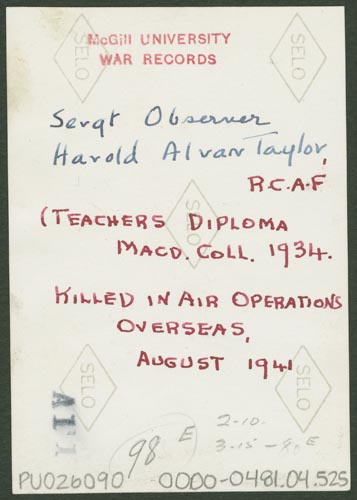 McGill UNIVERSITY
WAR RECORDS
SELO
SELO
Sergt Observer
Harold Alvan Taylor,
R.C.A.F
SELO
(TEACHERS DIPLOMA
MACD. COLL. 1934.
KILLED IN AIR OPERATIONS
OVERSEAS,
AUGUST 1941
SELO
SELO
A11
98 E
2-10.
PU026090
0000-0481.04.525